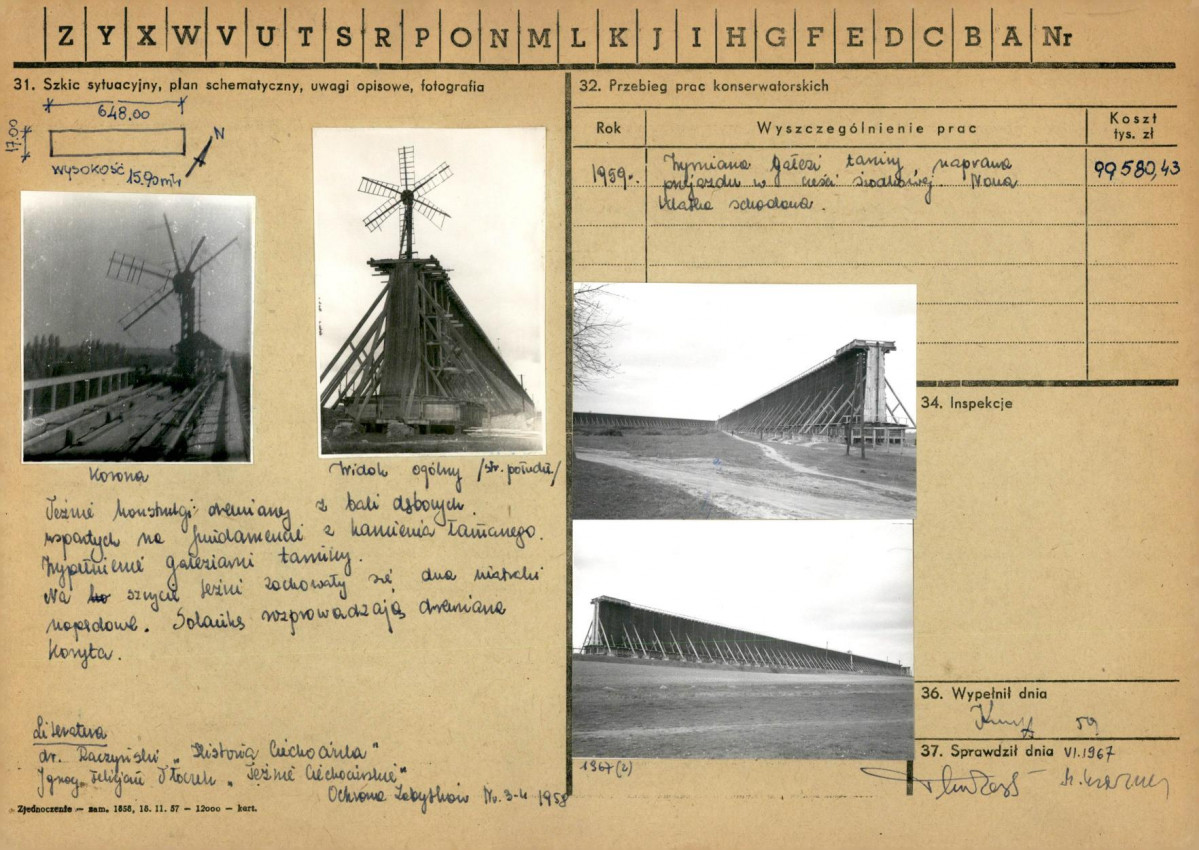 Z Y X W V U T S R P O N M L K J I H G F E D C B A Nr
31. Szkic sytuacyjny, plan schematyczny, uwagi opisowe, fotografia
648.00
17.00
N
wysokość 15.90 m
Korona
Widok ogólny /str. połudn/
Tężnie konstrukcji drewnianej z bali dębowych
wspartych na fundamencie z kamienia łamanego.
Wypełnienie gałęziami tarniny.
Na szczycie tężni zachowały się dwa wiatraki
napędowe. Solankę rozprowadzają drewniane
koryta.
Literatura
dr. Raczyński „Historia Ciechocinka"
Ignacy Felicjan Tłoczek „Tężnie Ciechocińskie"
Ochrona Zabytków Nr. 3-4 1958
Zjednoczenie — zam. 1858, 18. 11. 57 — 12000 — kart.
32. Przebieg prac konserwatorskich
Rok Wyszczególnienie prac Koszt tys. zł
1959r. Wymiana gałęzi tarniny, naprawa 99580,43
przejazdu w części środkowej. Nowa
klatka schodowa.
1967 (2)
34. Inspekcje
36. Wypełnił dnia
59
37. Sprawdził dnia VI.1967